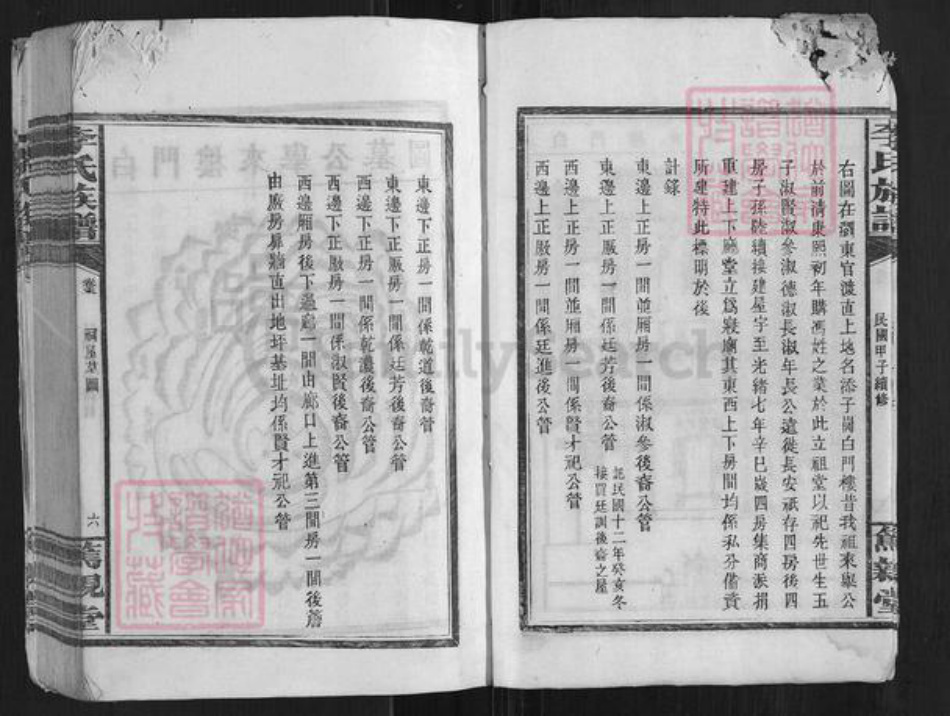 李氏族譜
民國甲子續修
篤親堂
右圖在瀏東官渡直上地名添子崗白門樓昔我祖來舉公
於前清康熙初年購馮姓之業於此立祖堂以祀先世生五
子淑賢淑參淑德淑長淑年長公遠徙長安祇存四房後四
房子孫陸續接建屋宇至光緒七年辛巳歲四房集商派捐
重建上下廳堂立為寢廟其東西上下房間均係私分備資
所建特此標明於後
計錄
東邊上正房一間並厢房一間係淑參後裔公管
東邊上正厫房一間係廷芳後裔公管 記民國十二年癸亥冬
接買廷訓後裔之屋
西邊上正房一間並厢房一間係賢才祀公管
西邊上正厫房一間係廷進後公管
東邊下正房一間係乾道後裔管
東邊下正厫房一間係廷芳後裔公管
西邊下正房一間係乾濃後裔公管
西邊下正厫房一間係淑賢後裔公管
西邊厢房後下過廳一間由廊口上進第三間房一間後簷
由厫房屏牆直出地坪基址均係賢才祀公管
李氏族譜
祠屋草圖
六
篤親堂